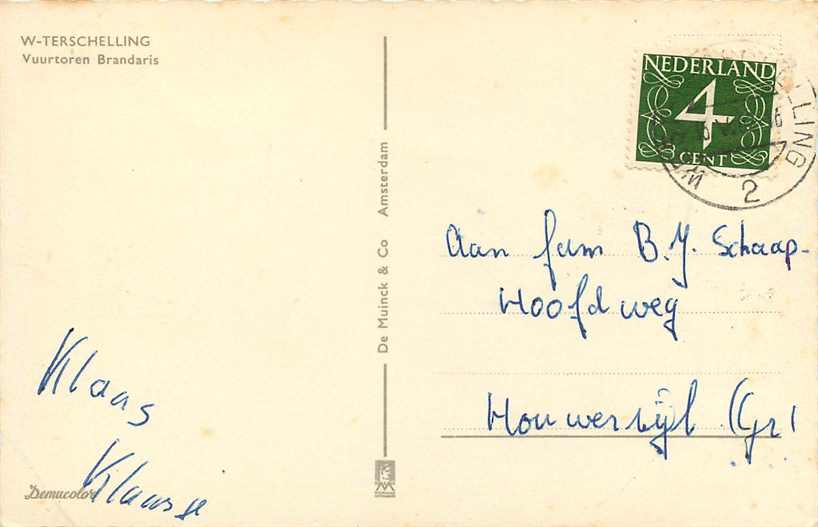 W-TERSCHELLING
Vuurtoren Brandaris
De Muinck & Co Amsterdam
NEDERLAND
4
CENT
2
Aan fam B.J. Schaap-
Hoofdweg
Houwerzijl (Gr)
Klaas
Klaasje
Demucolor